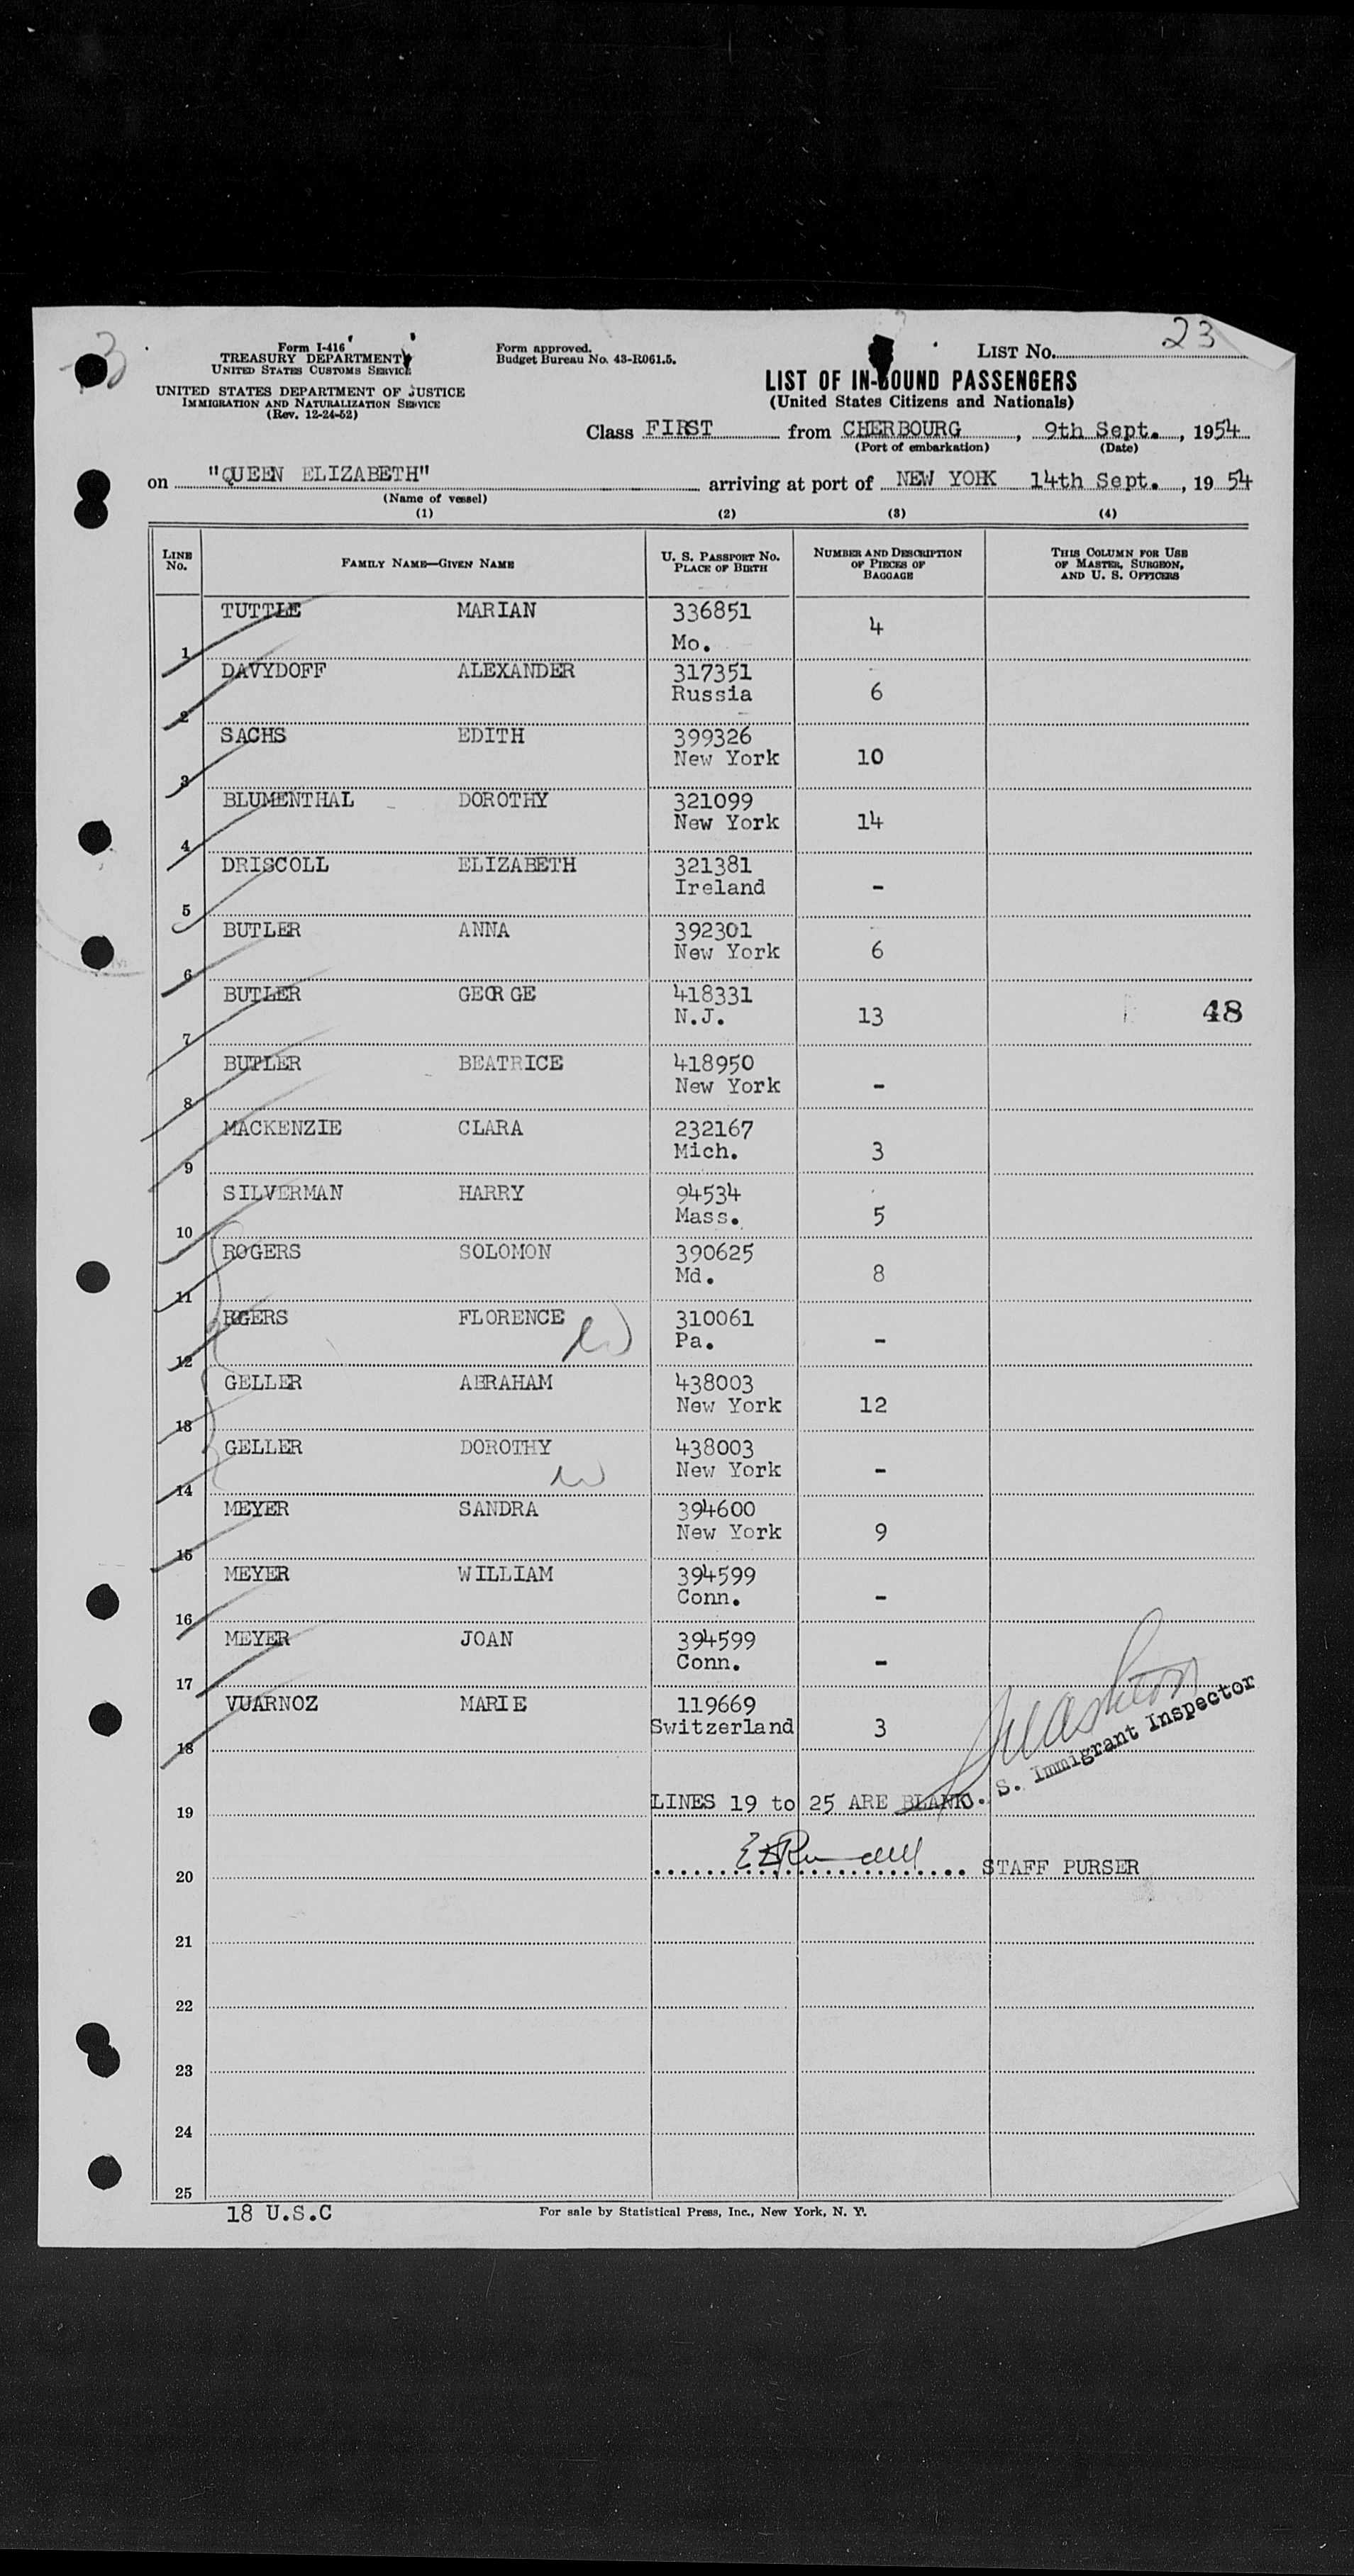 23
Form I-416
TREASURY DEPARTMENT
UNITED STATES CUSTOMS SERVICE
UNITED STATES DEPARTMENT OF JUSTICE
IMMIGRATION AND NATURALIZATION SERVICE
(Rev. 12-24-52)
Form approved.
Budget Bureau No. 43-R061.5.
LIST NO.
LIST OF IN-BOUND PASSENGERS
(United States Citizens and Nationals)
Class FIRST from CHERBOURG, 9th Sept., 1954
(Port of embarkation) (Date)
on "QUEEN ELIZABETH" arriving at port of NEW YORK 14th Sept., 1954
(Name of vessel)
(1) (2) (3) (4)
LINE NO. FAMILY NAME—GIVEN NAME U. S. PASSPORT NO. PLACE OF BIRTH NUMBER AND DESCRIPTION OF PIECES OF BAGGAGE THIS COLUMN FOR USE OF MASTER, SURGEON, AND U. S. OFFICERS
1 TUTTLE MARIAN 336851 Mo. 4
2 DAVYDOFF ALEXANDER 317351 Russia 6
3 SACHS EDITH 399326 New York 10
4 BLUMENTHAL DOROTHY 321099 New York 14
5 DRISCOLL ELIZABETH 321381 Ireland -
6 BUTLER ANNA 392301 New York 6
7 BUTLER GEORGE 418331 N.J. 13 48
8 BUTLER BEATRICE 418950 New York -
9 MACKENZIE CLARA 232167 Mich. 3
10 SILVERMAN HARRY 94534 Mass. 5
11 ROGERS SOLOMON 390625 Md. 8
12 RGERS FLORENCE 310061 Pa. -
13 GELLER ABRAHAM 438003 New York 12
14 GELLER DOROTHY 438003 New York -
15 MEYER SANDRA 394600 New York 9
16 MEYER WILLIAM 394599 Conn. -
17 MEYER JOAN 394599 Conn. -
18 VUARNOZ MARIE 119669 Switzerland 3
U. S. Immigrant Inspector
19 LINES 19 to 25 ARE BLANK
20 STAFF PURSER
21
22
23
24
25
18 U.S.C
For sale by Statistical Press, Inc., New York, N. Y.